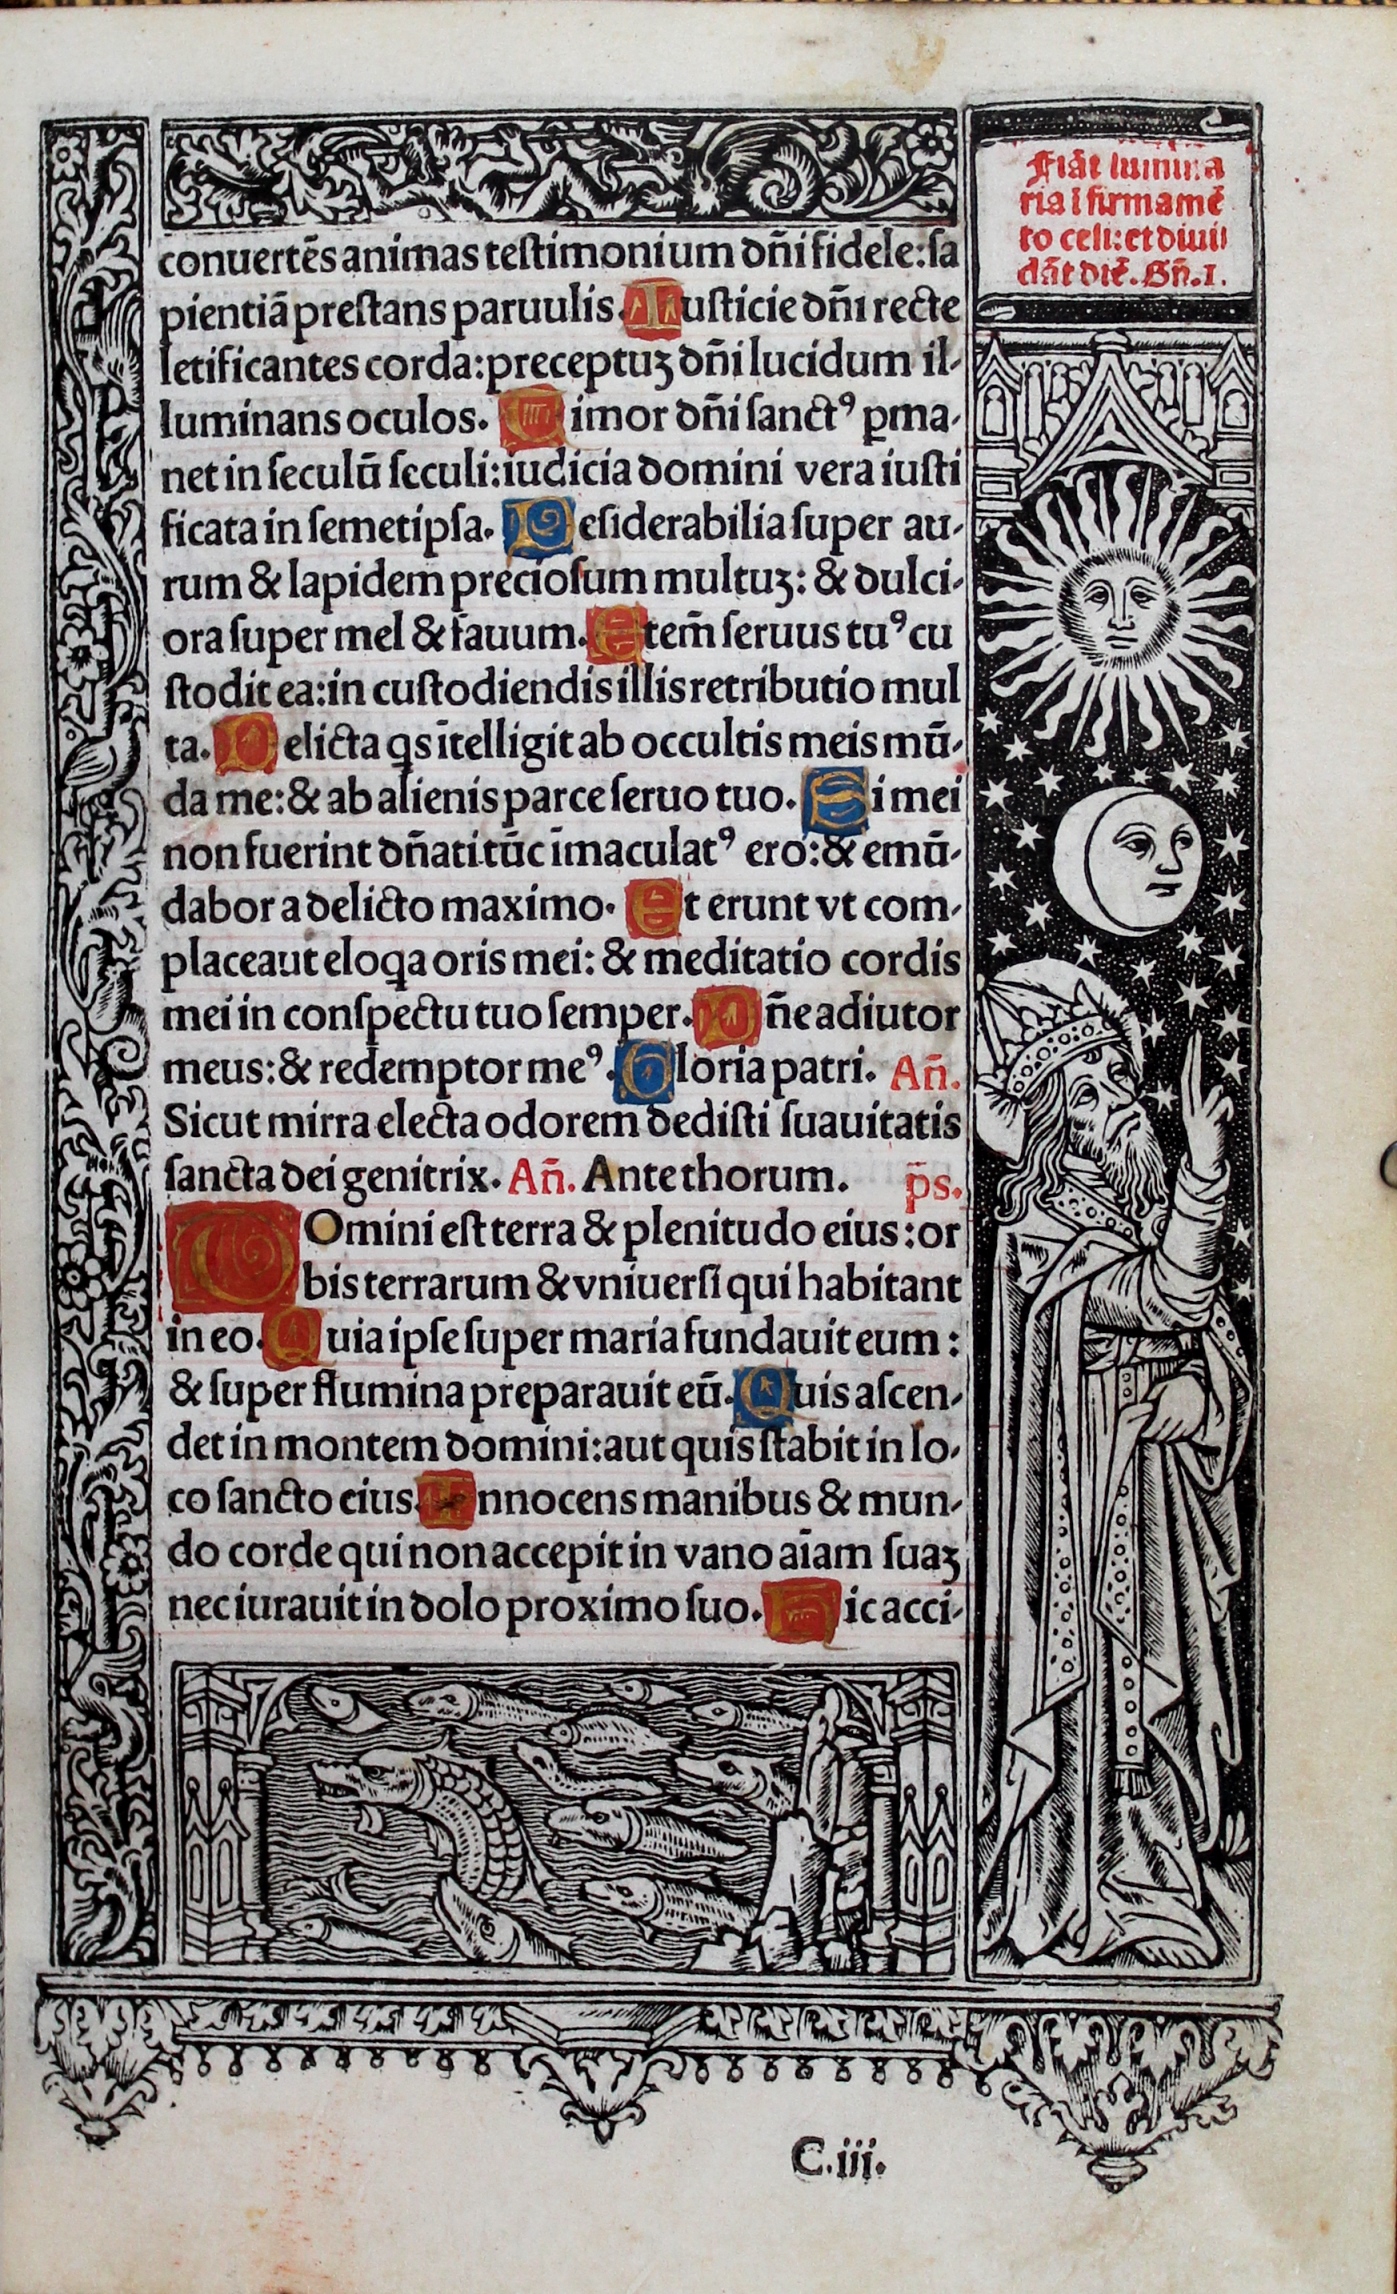 conuertēs animas testimonium dñi fidele: sa
pientiā prestans paruulis. Iusticie dñi recte
letificantes corda: preceptuꝫ dñi lucidum il-
luminans oculos. Timor dñi sanctꝰ ꝑma-
net in seculū seculi: iudicia domini vera iusti
ficata in semetipsa. Desiderabilia super au-
rum & lapidem preciosum multuꝫ: & dulci-
ora super mel & fauum. Etem̄ seruus tuꝰ cu
stodit ea: in custodiendis illis retributio mul
ta. Delicta qs ītelligit ab occultis meis mū-
da me: & ab alienis parce seruo tuo. Si mei
non fuerint dñati tūc īmaculatꝰ ero: & emū-
dabor a delicto maximo. Et erunt vt com-
placeaut eloqa oris mei: & meditatio cordis
mei in conspectu tuo semper. Dñe adiutor
meus: & redemptor meꝰ. Gloria patri. Añ.
Sicut mirra electa odorem dedisti suauitatis
sancta dei genitrix. Añ. Ante thorum. p̄s.
DOmini est terra & plenitudo eius: or
bis terrarum & vniuersi qui habitant
in eo. Quia ipse super maria fundauit eum:
& super flumina preparauit eū. Quis ascen-
det in montem domini: aut quis stabit in lo-
co sancto eius. Innocens manibus & mun-
do corde qui non accepit in vano aīam suaꝫ
nec iurauit in dolo proximo suo. Hic acci-
Fiāt lumina
ria ī firmamē
to celi: et diuii
dāt diē. Gñ. 1.
C.iii.